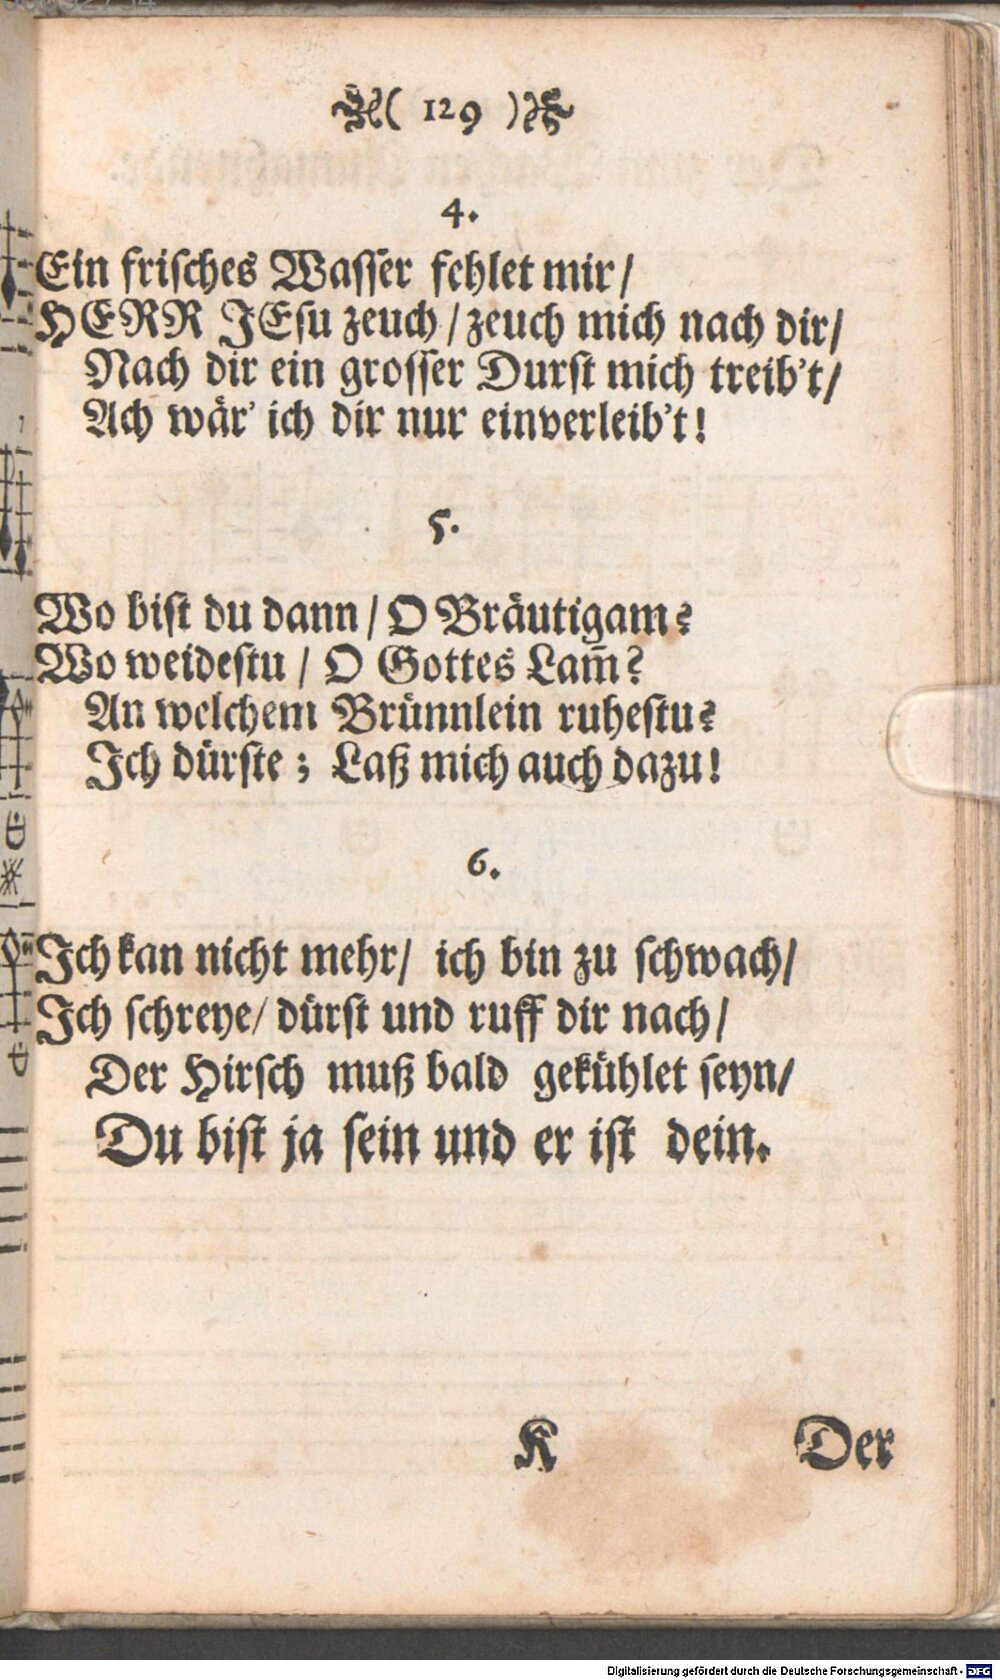 ( 129 )
4.
Ein frisches Wasser fehlet mir/
HERR JEsu zeuch/ zeuch mich nach dir/
Nach dir ein grosser Durst mich treib't/
Ach wär' ich dir nur einverleib't!
5.
Wo bist du dann/ O Bräutigam?
Wo weidestu/ O Gottes Lam̃?
An welchem Brünnlein ruhestu?
Ich dürste; Laß mich auch dazu!
6.
Ich kan nicht mehr/ ich bin zu schwach/
Ich schreye/ dürst und ruff dir nach/
Der Hirsch muß bald gekühlet seyn/
Du bist ja sein und er ist dein.
K Der
Digitalisierung gefördert durch die Deutsche Forschungsgemeinschaft - DFG